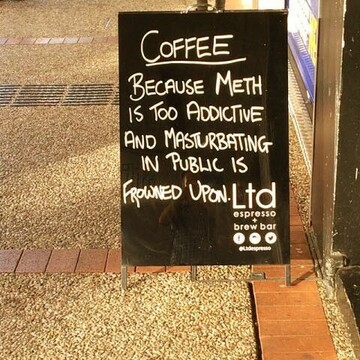 COFFEE
BECAUSE METH
IS TOO ADDICTIVE
AND MASTURBATING
IN PUBLIC IS
FROWNED UPON.
Ltd
espresso
+
brew bar
@Ltdespresso